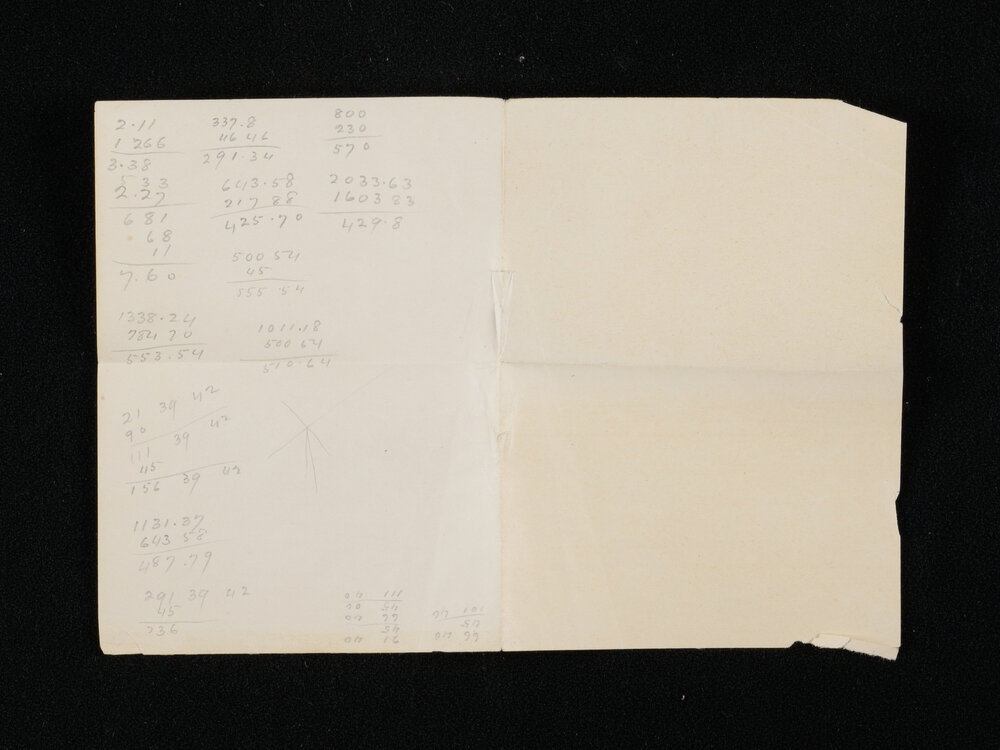 2.11
1 266
3.38
5 33
2.27
6 81
. 68
11
7.60
337.8
46 46
291.34
800
230
570
643.58
217 88
425.70
2033.63
1603 83
429.8
500 54
45
555.54
1338.24
784 70
553.54
1011.18
500 64
510.64
21 39 42
90
111 39 42
45
156 39 42
1131.37
643 58
487.79
291 39 42
45
736
21 40
45
66 40
45
111 40
66 40
45